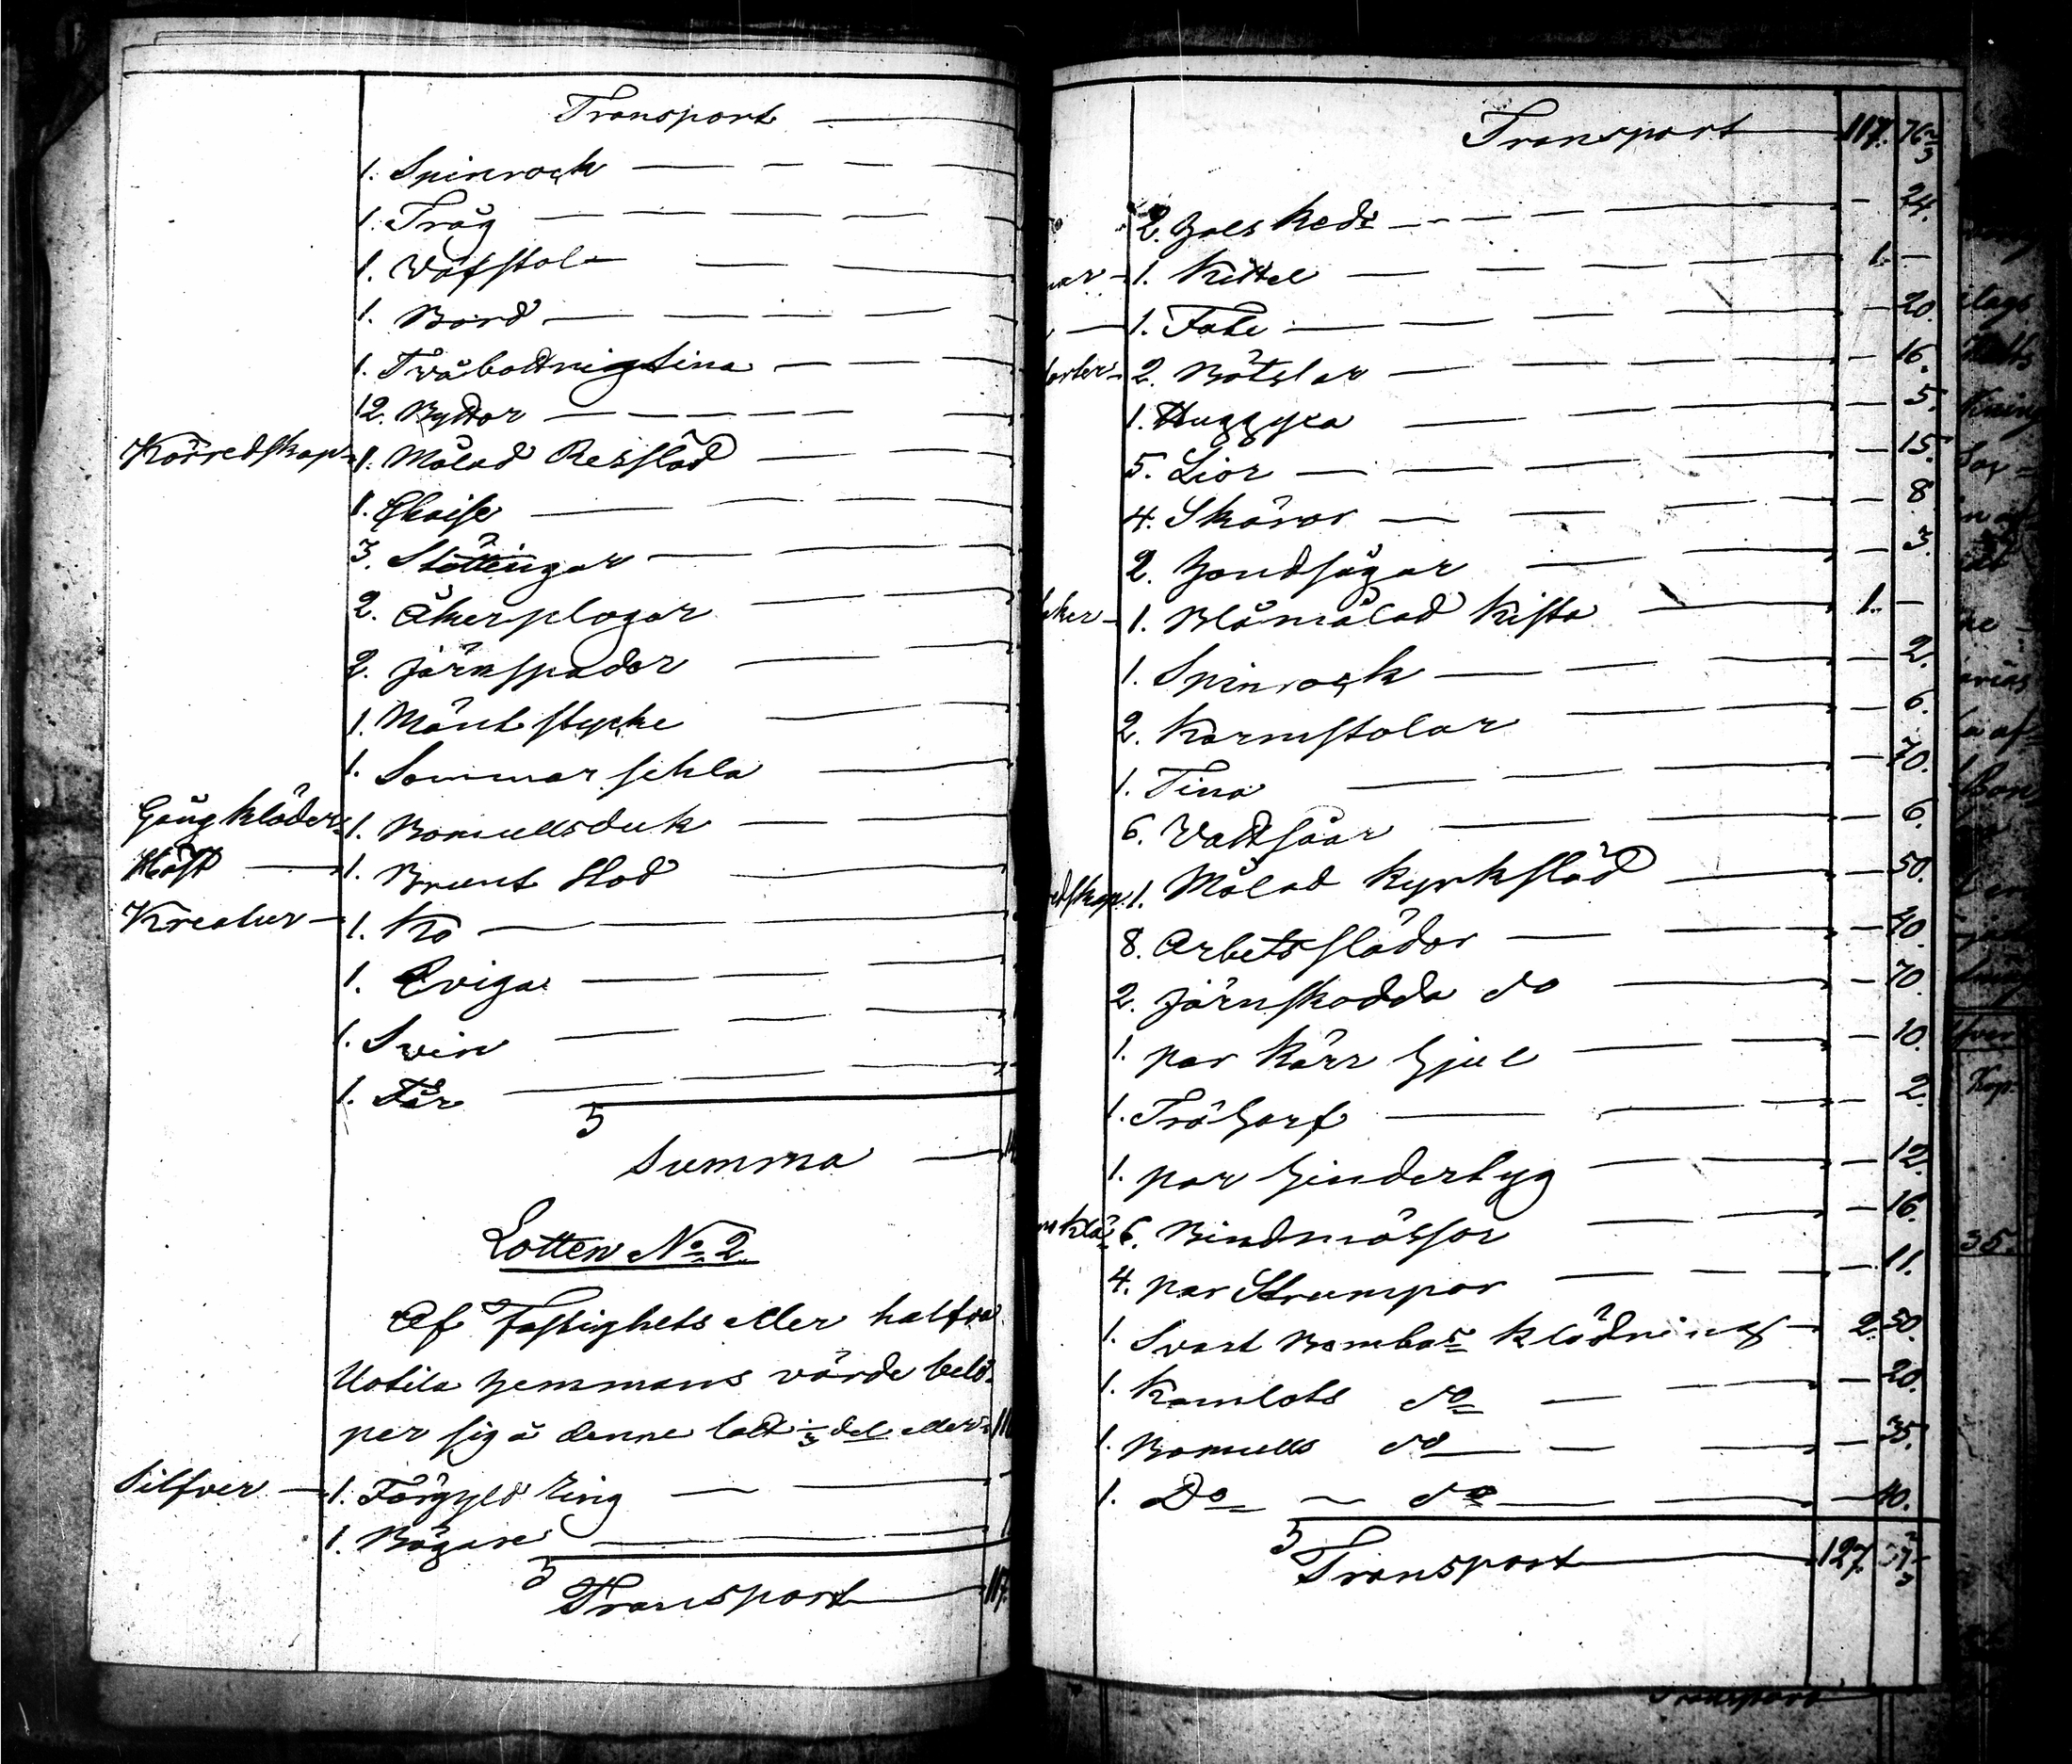 Transport
1. Spinrock
1. Tråg
1. Wäfstol
1. Bord
1. Tvåbottnig tina
12. Byttor
Körredskap 1. Målad Ressläd
1. Chaise
3. Stöttingar
2. Åkerplogar
2. järnspador
1. Mönt stycke
1. Sommar sehla
Gång kläder 1. Bomullsduk
Häst 1. Brunt Stod
Kreatur 1. Ko
1. Qviga
1. Svin
1. Får
Summa
Lotten No 2
Af Fastighets eller halfva
Uotila hemmans värde belö-
per sig å denne lott 1/3 del eller
Silfver 1. Förgyld ring
1. Bägare
Transport 117.
Transport 117. 76 2/3
2. Hals ked: 24.
1. Kittel 1. –
1. Fate 20.
2. Bötslar 16.
1. Huggyxa 5.
5. Lior 15.
4. Skäror 8.
2. Handsågar 3.
1. Blåmålad Kista 1. –
1. Spinrock 2.
2. Karmstolar 6.
1. Tina 70.
6. Vattsåar 6.
edskap. 1. Målad Kyrksläd 50.
8. Arbetsslädor 40.
2. järnskodda do 70.
1. par Kärr hjul 10.
1. Träharf 2.
1. par hindertyg 12.
6. Bindmössor 16.
4. par Strumpor 11.
1. Svart Bombas: klädning 2. 50.
1. Kamlots do 20.
1. Bomulls do 35.
1. Do do 40.
Transport 127.
Transport